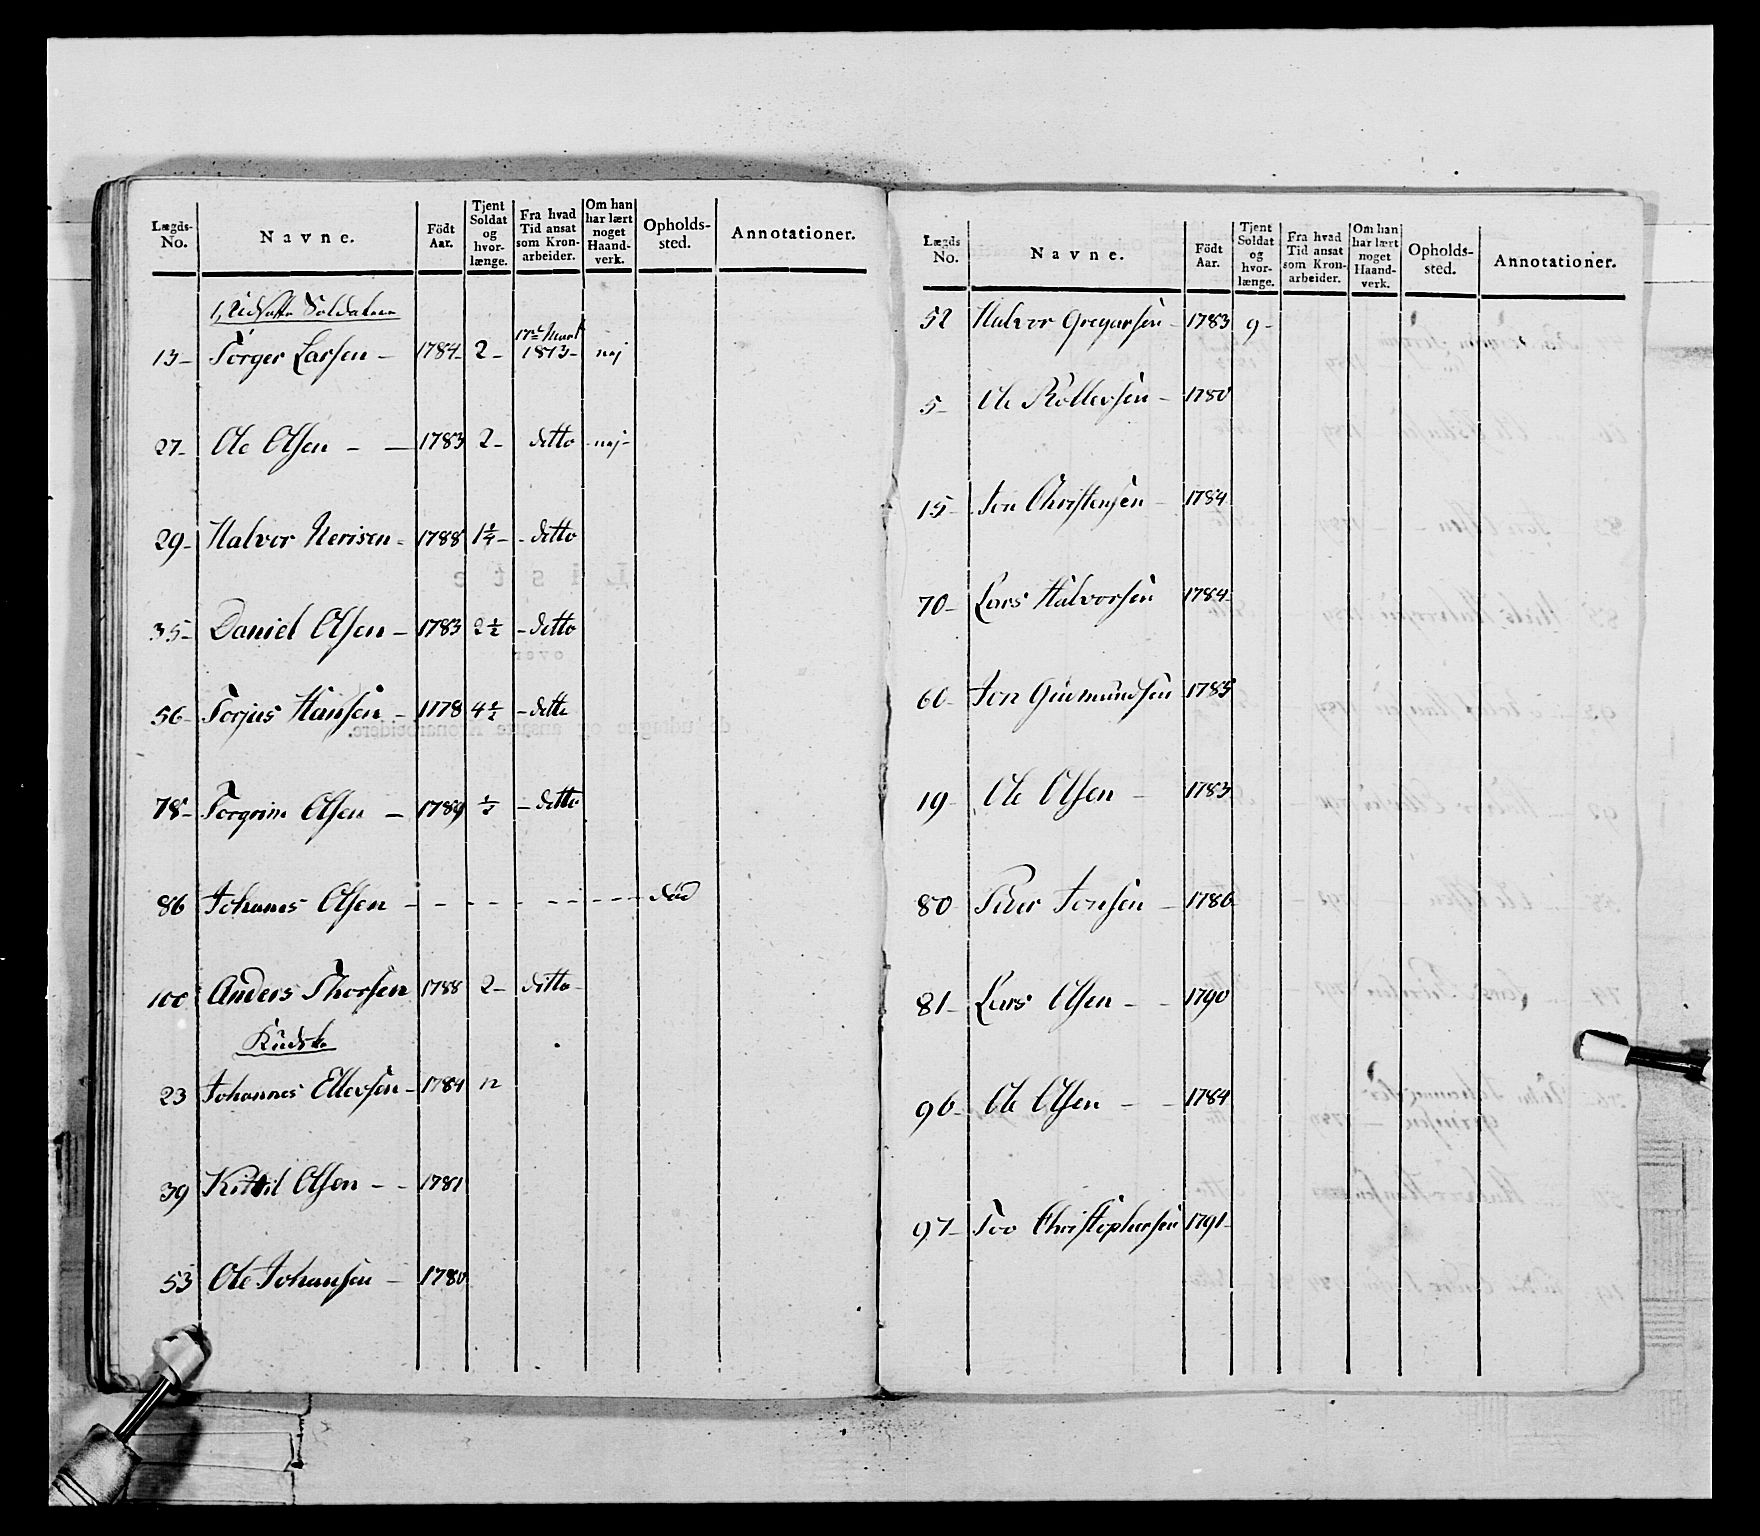 Lægds-No. Navne. Födt Aar. Tjent Soldat og hvor-længe. Fra hvad Tid ansat som Kron-arbeider. Om han har lært noget Haand-verk. Opholds-sted. Annotationer.
Soldater
13- Torger Larsen - 1784- 2- 17de Mart 1813- nej
27- Ole Olsen - - 1783 2- ditto - nej-
29- Halvor Nerisen- 1788 1½- - ditto
35- Daniel Olsen - 1783 2½ - ditto
56- Torjus Hansen - 1778 4½ - ditto
78- Torgrim Olsen - 1789 ½ - ditto
86 Johanes Olsen - - - - - - - - - død
100 Anders Thorsen 1788 2- ditto-
Kudske
23 Johannes Ellevsen - 1784 12
39 Kittil Olsen - - 1781
53 Ole Johansen - 1780
Lægds No. Navne. Födt Aar. Tjent Soldat og hvor-længe. Fra hvad Tid ansat som Kron-arbeider. Om han har lært noget Haand-verk. Opholds-sted. Annotationer.
52 Halvor Gregarsen - 1783 9-
5- Ole Rollevsen - 1780
15- Jon Christensen - 1784
70- Lars Halvorsen 1784-
60- Jon Gudmundsen 1785
19- Ole Olsen - 1783
80 Peder Jonsen - 1786
81- Lars Olsen - - 1790
96- Ole Olsen - - 1784
97- Tov Christophersen 1791-